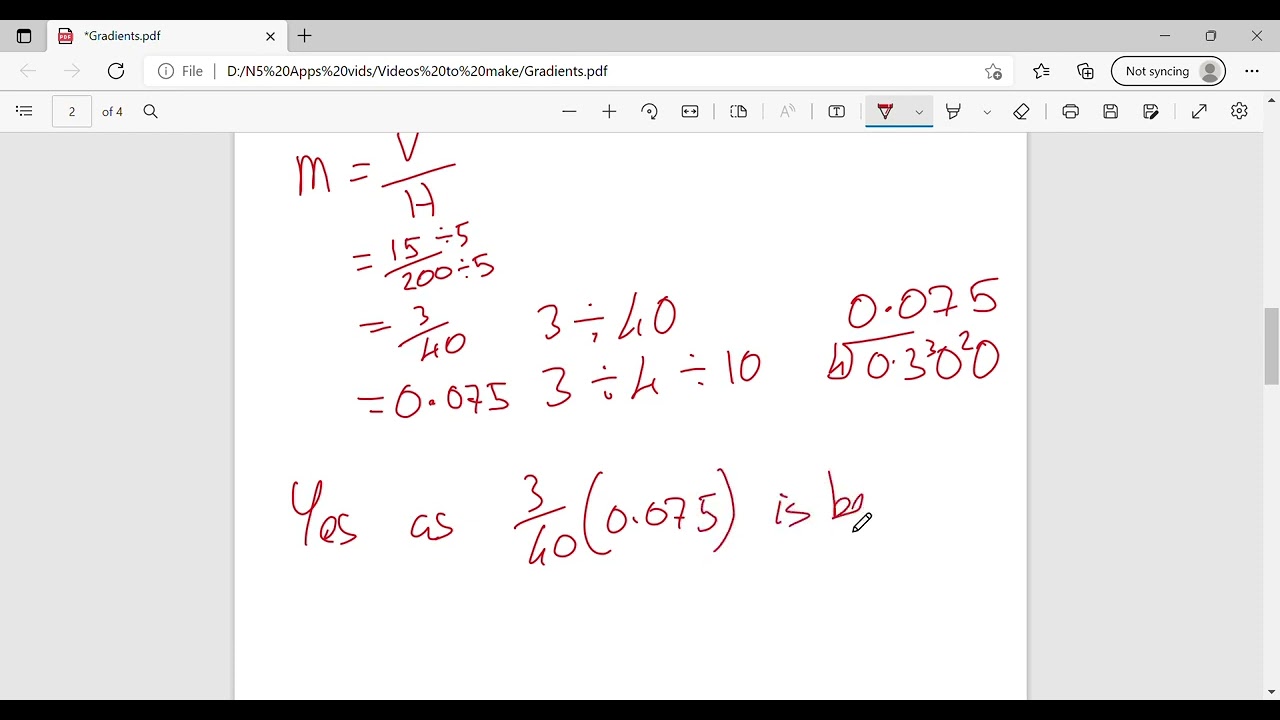 *Gradients.pdf
File D:/N5%20Apps%20vids/Videos%20to%20make/Gradients.pdf Not syncing
2 of 4
m = V/H
= 15 ÷5 / 200 ÷5
= 3/40 3 ÷ 40 0.075
= 0.075 3 ÷ 4 ÷ 10 4 0.3³0²0
Yes as 3/40 (0.075) is be